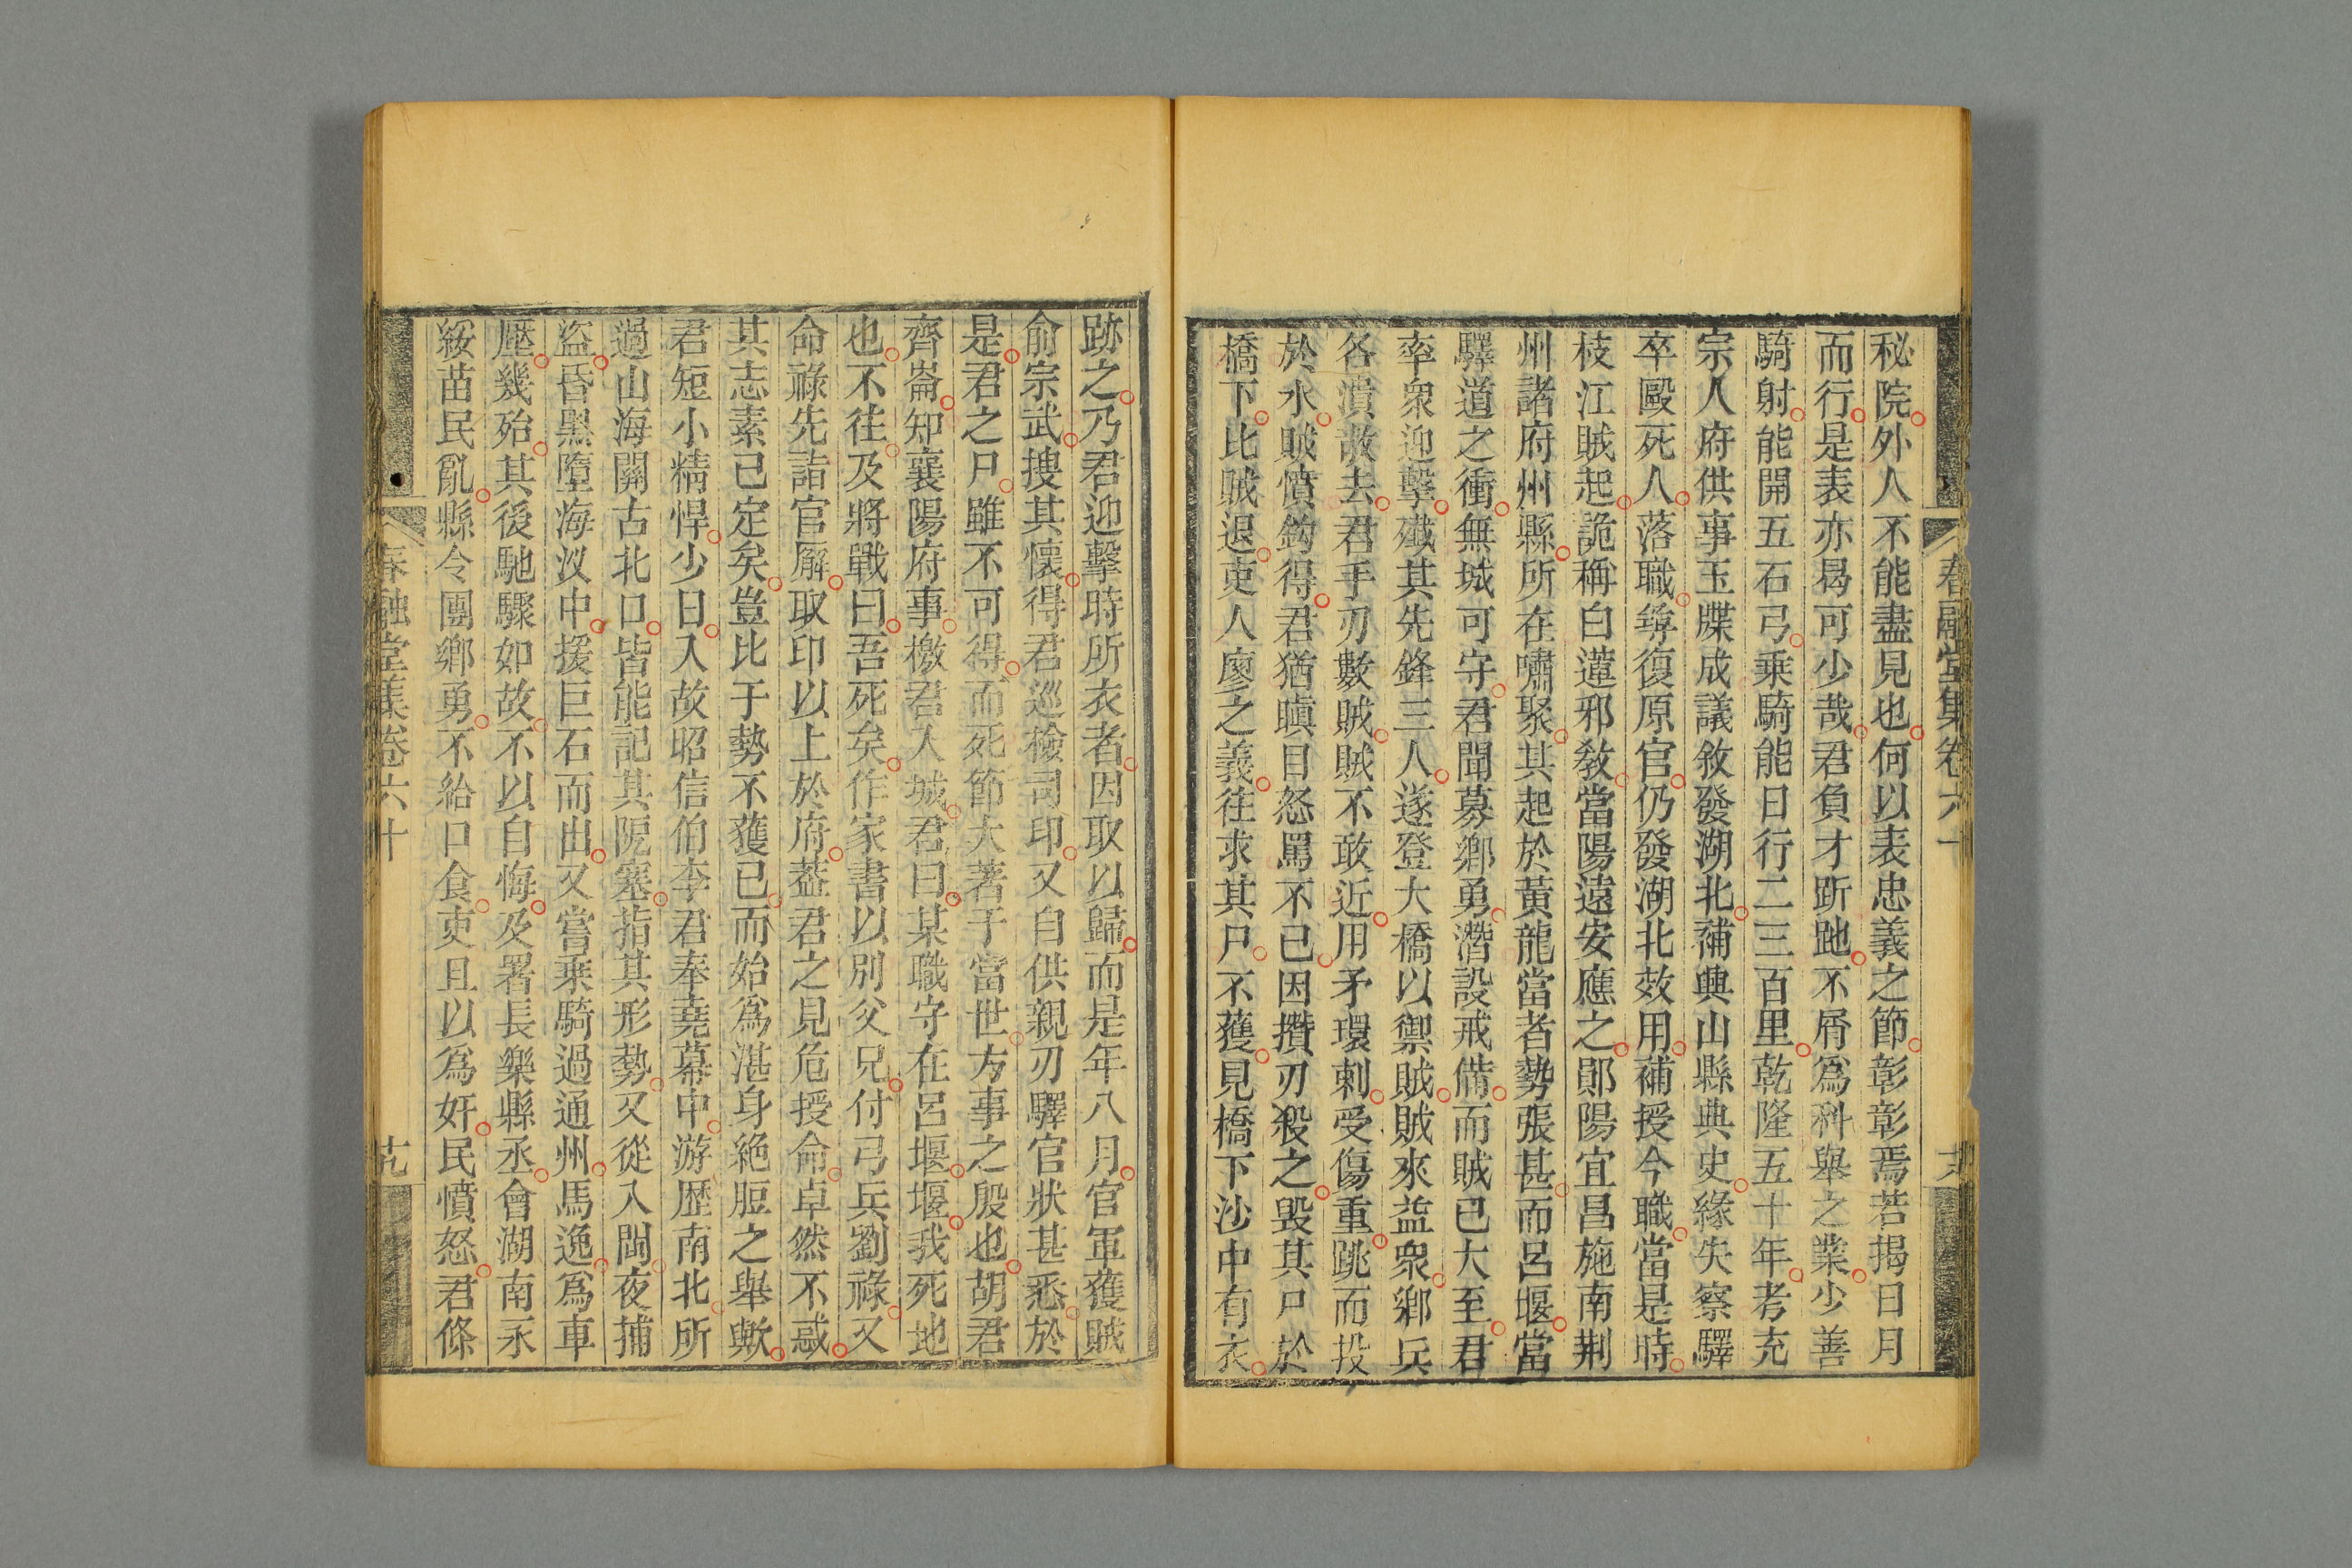 秘院外人不能盡見也何以表忠義之節彰彰焉若揭日月
而行是表亦曷可少哉君負才跅跑不屑爲科舉之業少善
騎射能開五石弓乗騎能日行二三百里乾隆五十年考充
宗人府供事玉牒成議敘發湖北補興山縣典史緣失察驛
卒毆死人落職尋復原官仍發湖北效用補授今職當是時
枝江賊起詭稱白蓮邪敎當陽遠安應之鄖陽宜昌施南荆
州諸府州縣所在嘯聚其起於黃龍當者勢張甚而呂堰當
驛道之衝無城可守君聞募鄉勇潛設戒備而賊已大至君
率衆迎擊殲其先鋒三人遂登大橋以禦賊賊來益衆鄉兵
各潰散去君手刃數賊賊不敢近用矛環刺受傷重跳而投
於水賊憤鈎得君猶瞋目怒罵不已因攢刃殺之毀其尸於
橋下比賊退吏人廖之義往求其尸不獲見橋下沙中有衣
春融堂集卷六十
跡之乃君迎擊時所衣者因取以歸而是年八月官軍獲賊
俞宗武搜其懷得君巡檢司印又自供親刃驛官狀甚悉於
是君之尸雖不可得而死節大著于當世方事之殷也胡君
齊崙知襄陽府事檄君入城君曰某職守在呂堰堰我死地
也不往及將戰曰吾死矣作家書以別父兄付弓兵劉祿又
命祿先詣官廨取印以上於府葢君之見危授命卓然不惑
其志素已定矣豈比于勢不獲已而始爲湛身絶脰之舉歟
君短小精悍少日入故昭信伯李君奉堯幕中游歴南北所
過山海關古北口皆能記其阨塞指其形勢又從入閩夜捕
盜昏黑墮海汊中援巨石而出又嘗乗騎過通州馬逸爲車
壓幾殆其後馳驟如故不以自悔及署長樂縣丞會湖南永
綏苗民亂縣令團鄉勇不給口食吏且以爲奸民憤怒君條
春融堂集卷六十